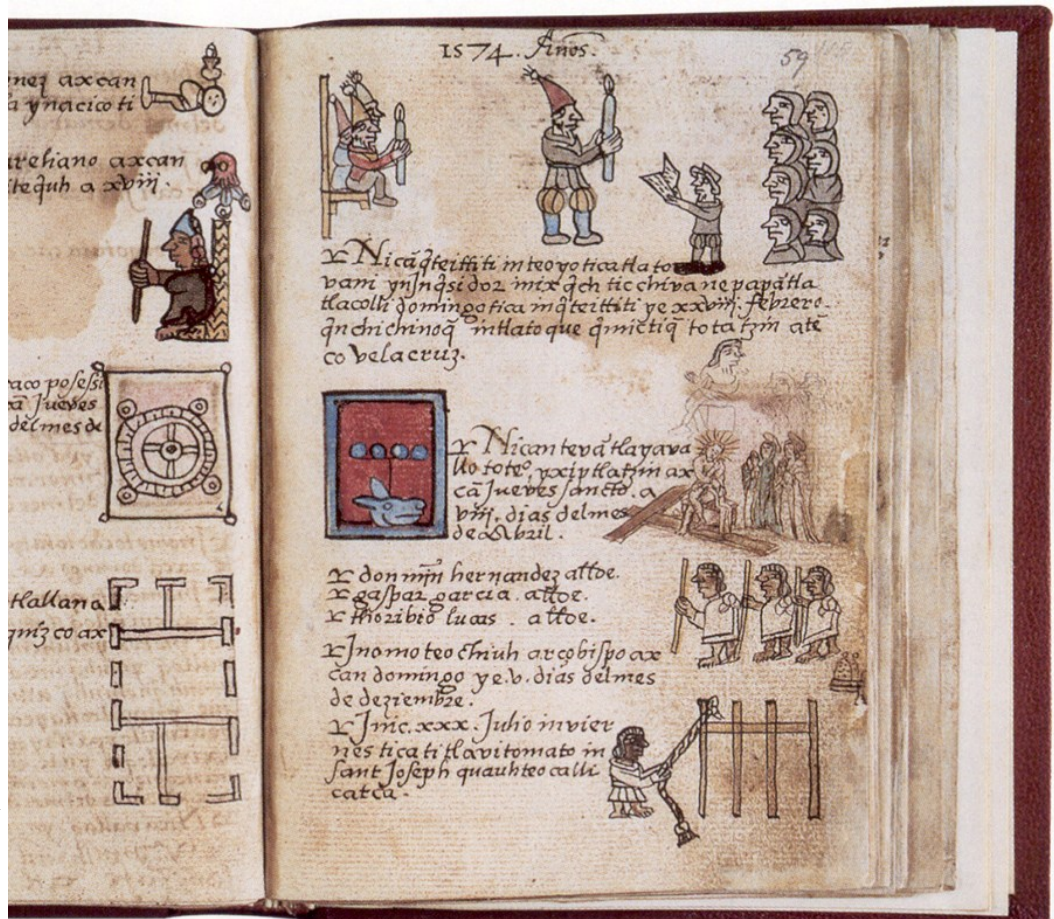 nez axcan
a ynacico ti
areliano axcan
itequh a xviij.
aco posesi
cā Jueves
del mes de
tlallana
quiz co ax
1574. Años.
59
Nicā q̄teittiti in teoyotica tlato
vani ynInq̄sidor mixq̄ch ticchiva nepapā tla
tlacolli domingotica in q̄teittiti ye xxviij. febrero.
q̄nchichinoq̄ intlatoque q̄mictiq̄ totatzin atē
co velacruz.
Nican tevā tlayava
llo toteº, yxiptlatzin ax
cā Jueves sancto. a
viij. dias del mes
de Abril.
don mīn hernandez allde.
gaspar garcia. allde.
thoribio lucas. allde.
Inomoteochiuh arçobispo ax
can domingo ye .v. dias del mes
de deziembre.
Inic. xxx. Julio in vier
nestica titlavitomato in
sant Joseph quauhteocalli
catca.